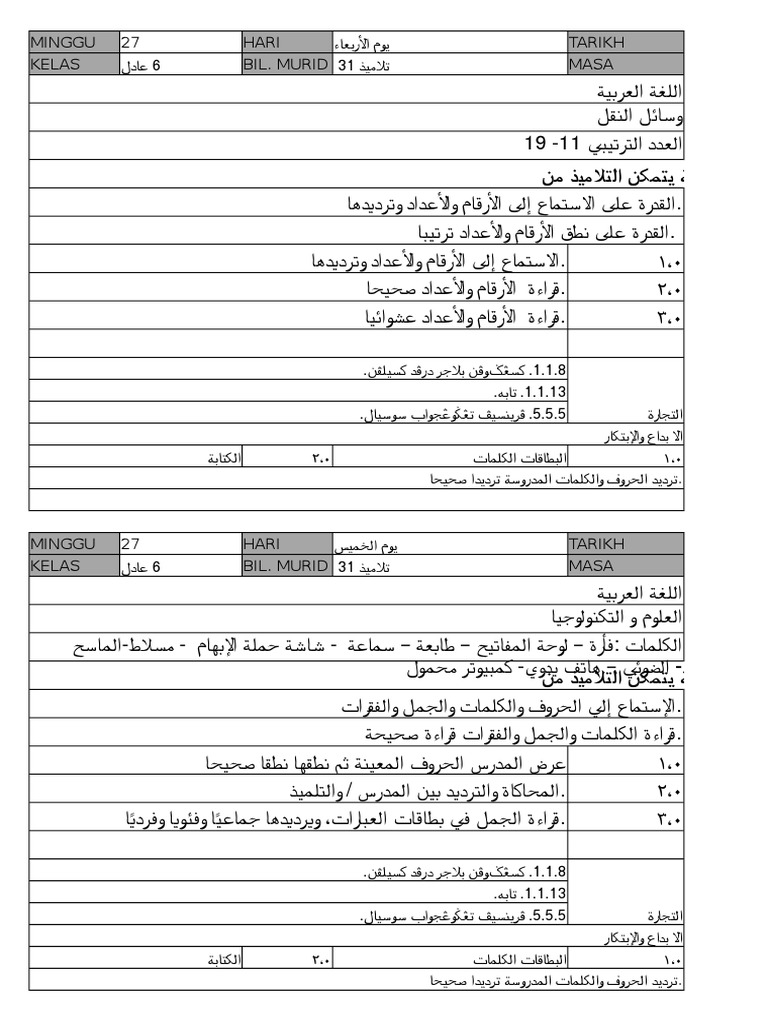 MINGGU 27 HARI يوم الأربعاء TARIKH
KELAS 6 عادل BIL. MURID 31 تلاميذ MASA
اللغة العربية
وسائل النقل
العدد الترتيبي 11- 19
يتمكن التلاميذ من
القدرة على الاستماع إلى الأرقام والأعداد وترديدها.
القدرة على نطق الأرقام والأعداد ترتيبا.
١،٠ الاستماع إلى الأرقام والأعداد وترديدها.
٢،٠ قراءة الأرقام والأعداد صحيحا.
٣،٠ قراءة الأرقام والأعداد عشوائيا.
1.1.8. كسڠݢوڤن بلاجر درڤد كسيلڤن.
1.1.13. تابه.
التجارة 5.5.5. ڤرينسيڤ تڠݢوڠجواب سوسيال.
الا بداع والإبتكار
١،٠ البطاقات الكلمات ٢،٠ الكتابة
ترديد الحروف والكلمات المدروسة ترديدا صحيحا.
MINGGU 27 HARI يوم الخميس TARIKH
KELAS 6 عادل BIL. MURID 31 تلاميذ MASA
اللغة العربية
العلوم و التكنولوجيا
الكلمات :فأرة – لوحة المفاتيح – طابعة – سماعة - شاشة حملة الإبهام - مسلاط-الماسح
الضوئي – هاتف يدوي- كمبيوتر محمول -
يتمكن التلاميذ من
الإستماع إلي الحروف والكلمات والجمل والفقرات.
قراءة الكلمات والجمل والفقرات قراءة صحيحة.
١،٠ عرض المدرس الحروف المعينة ثم نطقها نطقا صحيحا
٢،٠ المحاكاة والترديد بين المدرس /والتلميذ.
٣،٠ قراءة الجمل في بطاقات العبارات، ويرديدها جماعيًا وفئويا وفرديًا.
1.1.8. كسڠݢوڤن بلاجر درڤد كسيلڤن.
1.1.13. تابه.
التجارة 5.5.5. ڤرينسيڤ تڠݢوڠجواب سوسيال.
الا بداع والإبتكار
١،٠ البطاقات الكلمات ٢،٠ الكتابة
ترديد الحروف والكلمات المدروسة ترديدا صحيحا.